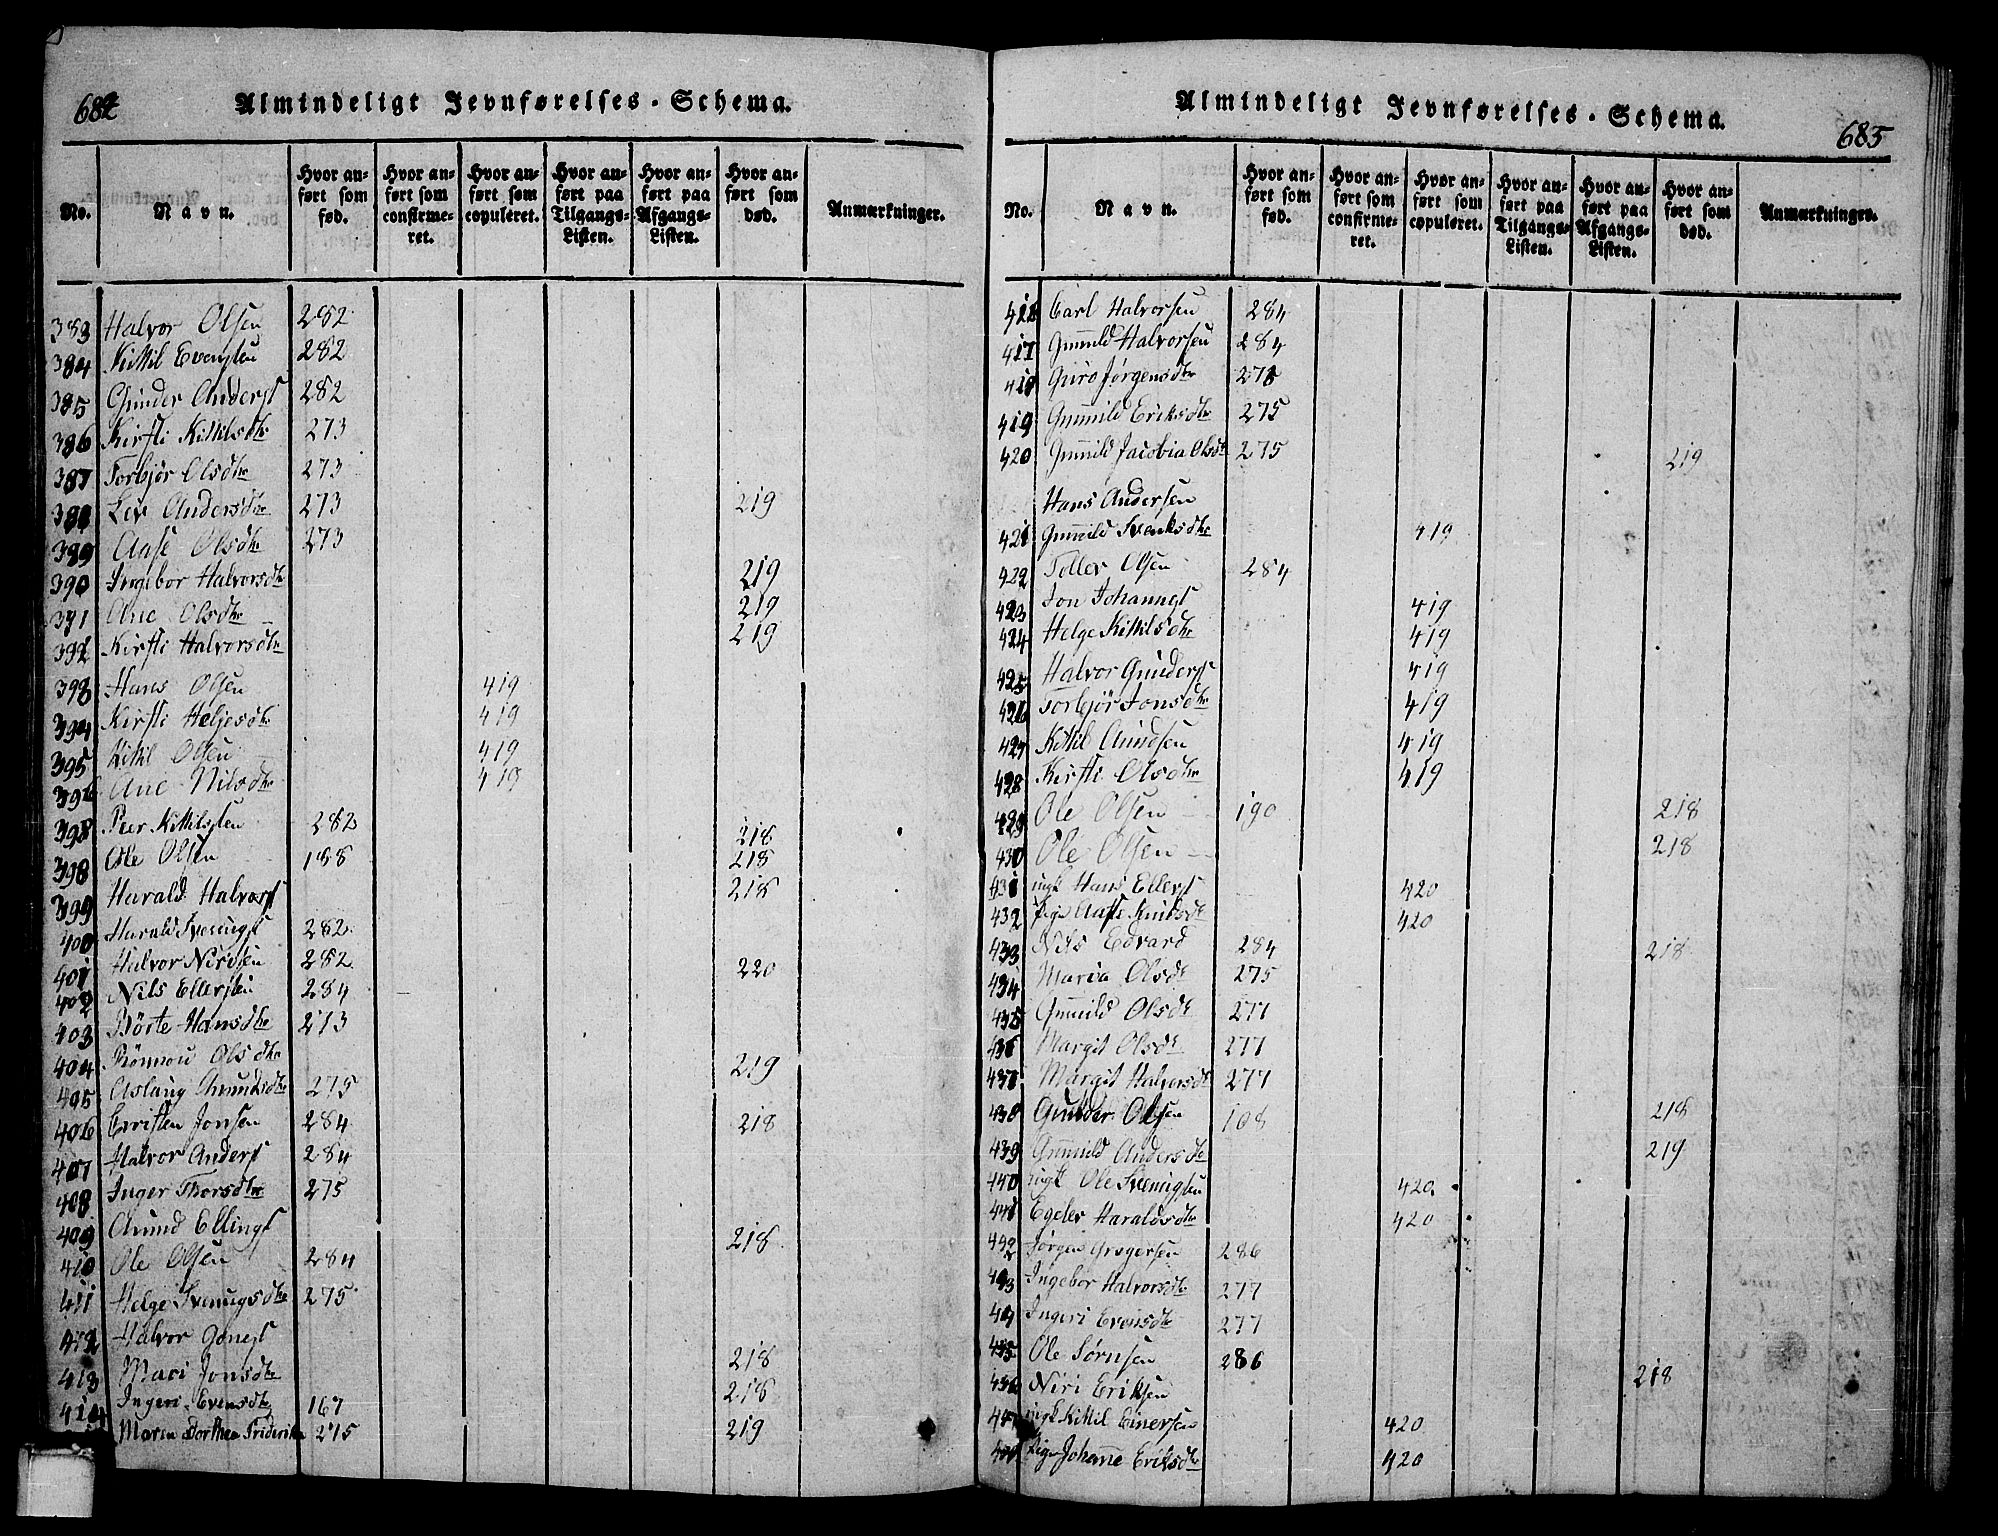 682
Almindeligt Jevnførelses-Schema.
No. Navn. Hvor anført som fød. Hvor anført som confirmeret. Hvor anført som copuleret. Hvor anført paa Tilgangs-Listen. Hvor anført paa Afgangs-Listen. Hvor anført som død. Anmærkninger.
383 Halvor Olsen 282
384 Kittil Evensen 282
385 Gunder Anders 282
386 Kirsti Kittilsdtr 273
387 Torbjør Olsdtr 273
388 Liv Andersdtr 273 219
389 Aase Olsdtr 273
390 Ingebor Halvorsdtr 219
391 Ane Olsdtr 219
392 Kirsti Halvorsdtr 219
393 Hans Olsen 419
394 Kirsti Heljesdtr 419
395 Kittil Olsen 419
396 Ane Nilsdtr 419
398 Peer Kittilsen 282 218
398 Ole Olsen 188 218
399 Harald Halvors 218
400 Harald Svenings 282
401 Halvor Nirisen 282 220
402 Nils Ellersen 284
403 Börte Hansdtr 273
404 Rönnou Olsdtr 219
405 Aslaug Amundsdtr 275
406 Cristen Jonsen 284 218
407 Halvor Anders 284
408 Inger Thorsdtr 275
409 Amund Ellings 218
410 Ole Olsen 284
411 Helge Sveningsdtr 275
412 Halvor Jones 218
413 Mari Jonsdtr 218
414 Ingeri Evensdtr 167 219
Maren Dorthea Friderika 275
Almindeligt Jevnførelses-Schema.
683
No. Navn. Hvor anført som fød. Hvor anført som confirmeret. Hvor anført som copuleret. Hvor anført paa Tilgangs-Listen. Hvor anført paa Afgangs-Listen. Hvor anført som død. Anmærkninger.
Carl Halvorsen 284
417 Gunnild Halvorsen 284
418 Guro Jørgensdtr 275
419 Gunnild Eriksdtr 275
420 Gunnild Jacobia Olsdtr 275 219
Hans Andersen
421 Gunnild Svenksdtr 419
422 Toller Olsen 284
423 Jon Johannes 419
424 Helge Kittilsdtr 419
425 Halvor Gunders 419
426 Torbjör Jonsdtr 419
427 Kittil Amundsen 419
428 Kirsti Olsdtr 419
429 Ole Olsen 190 218
430 Ole Olsen 218
431 ungk Hans Ellers 420
432 Pige Aase Knudsdtr 420
433 Nils Edvard 284 218
434 Maria Olsdtr 275
435 Gunnild Olsdtr 277
436 Margit Olsdtr 277
437 Margit Halvorsdtr 277
438 Gunder Olsen 108 218
439 Gunnild Andersdtr 219
440 ungk Ole Sveningsen 420
441 Egeler Haraldsdtr 420
442 Jørgen Gregersen 286
443 Ingebor Halvorsdtr 277
444 Ingeri Evensdtr 277
445 Ole Sørnsen 286
446 Niri Eriksen 218
447 ungk Kittil Einersen 420
448 Pige Johanne Eriksdtr 420